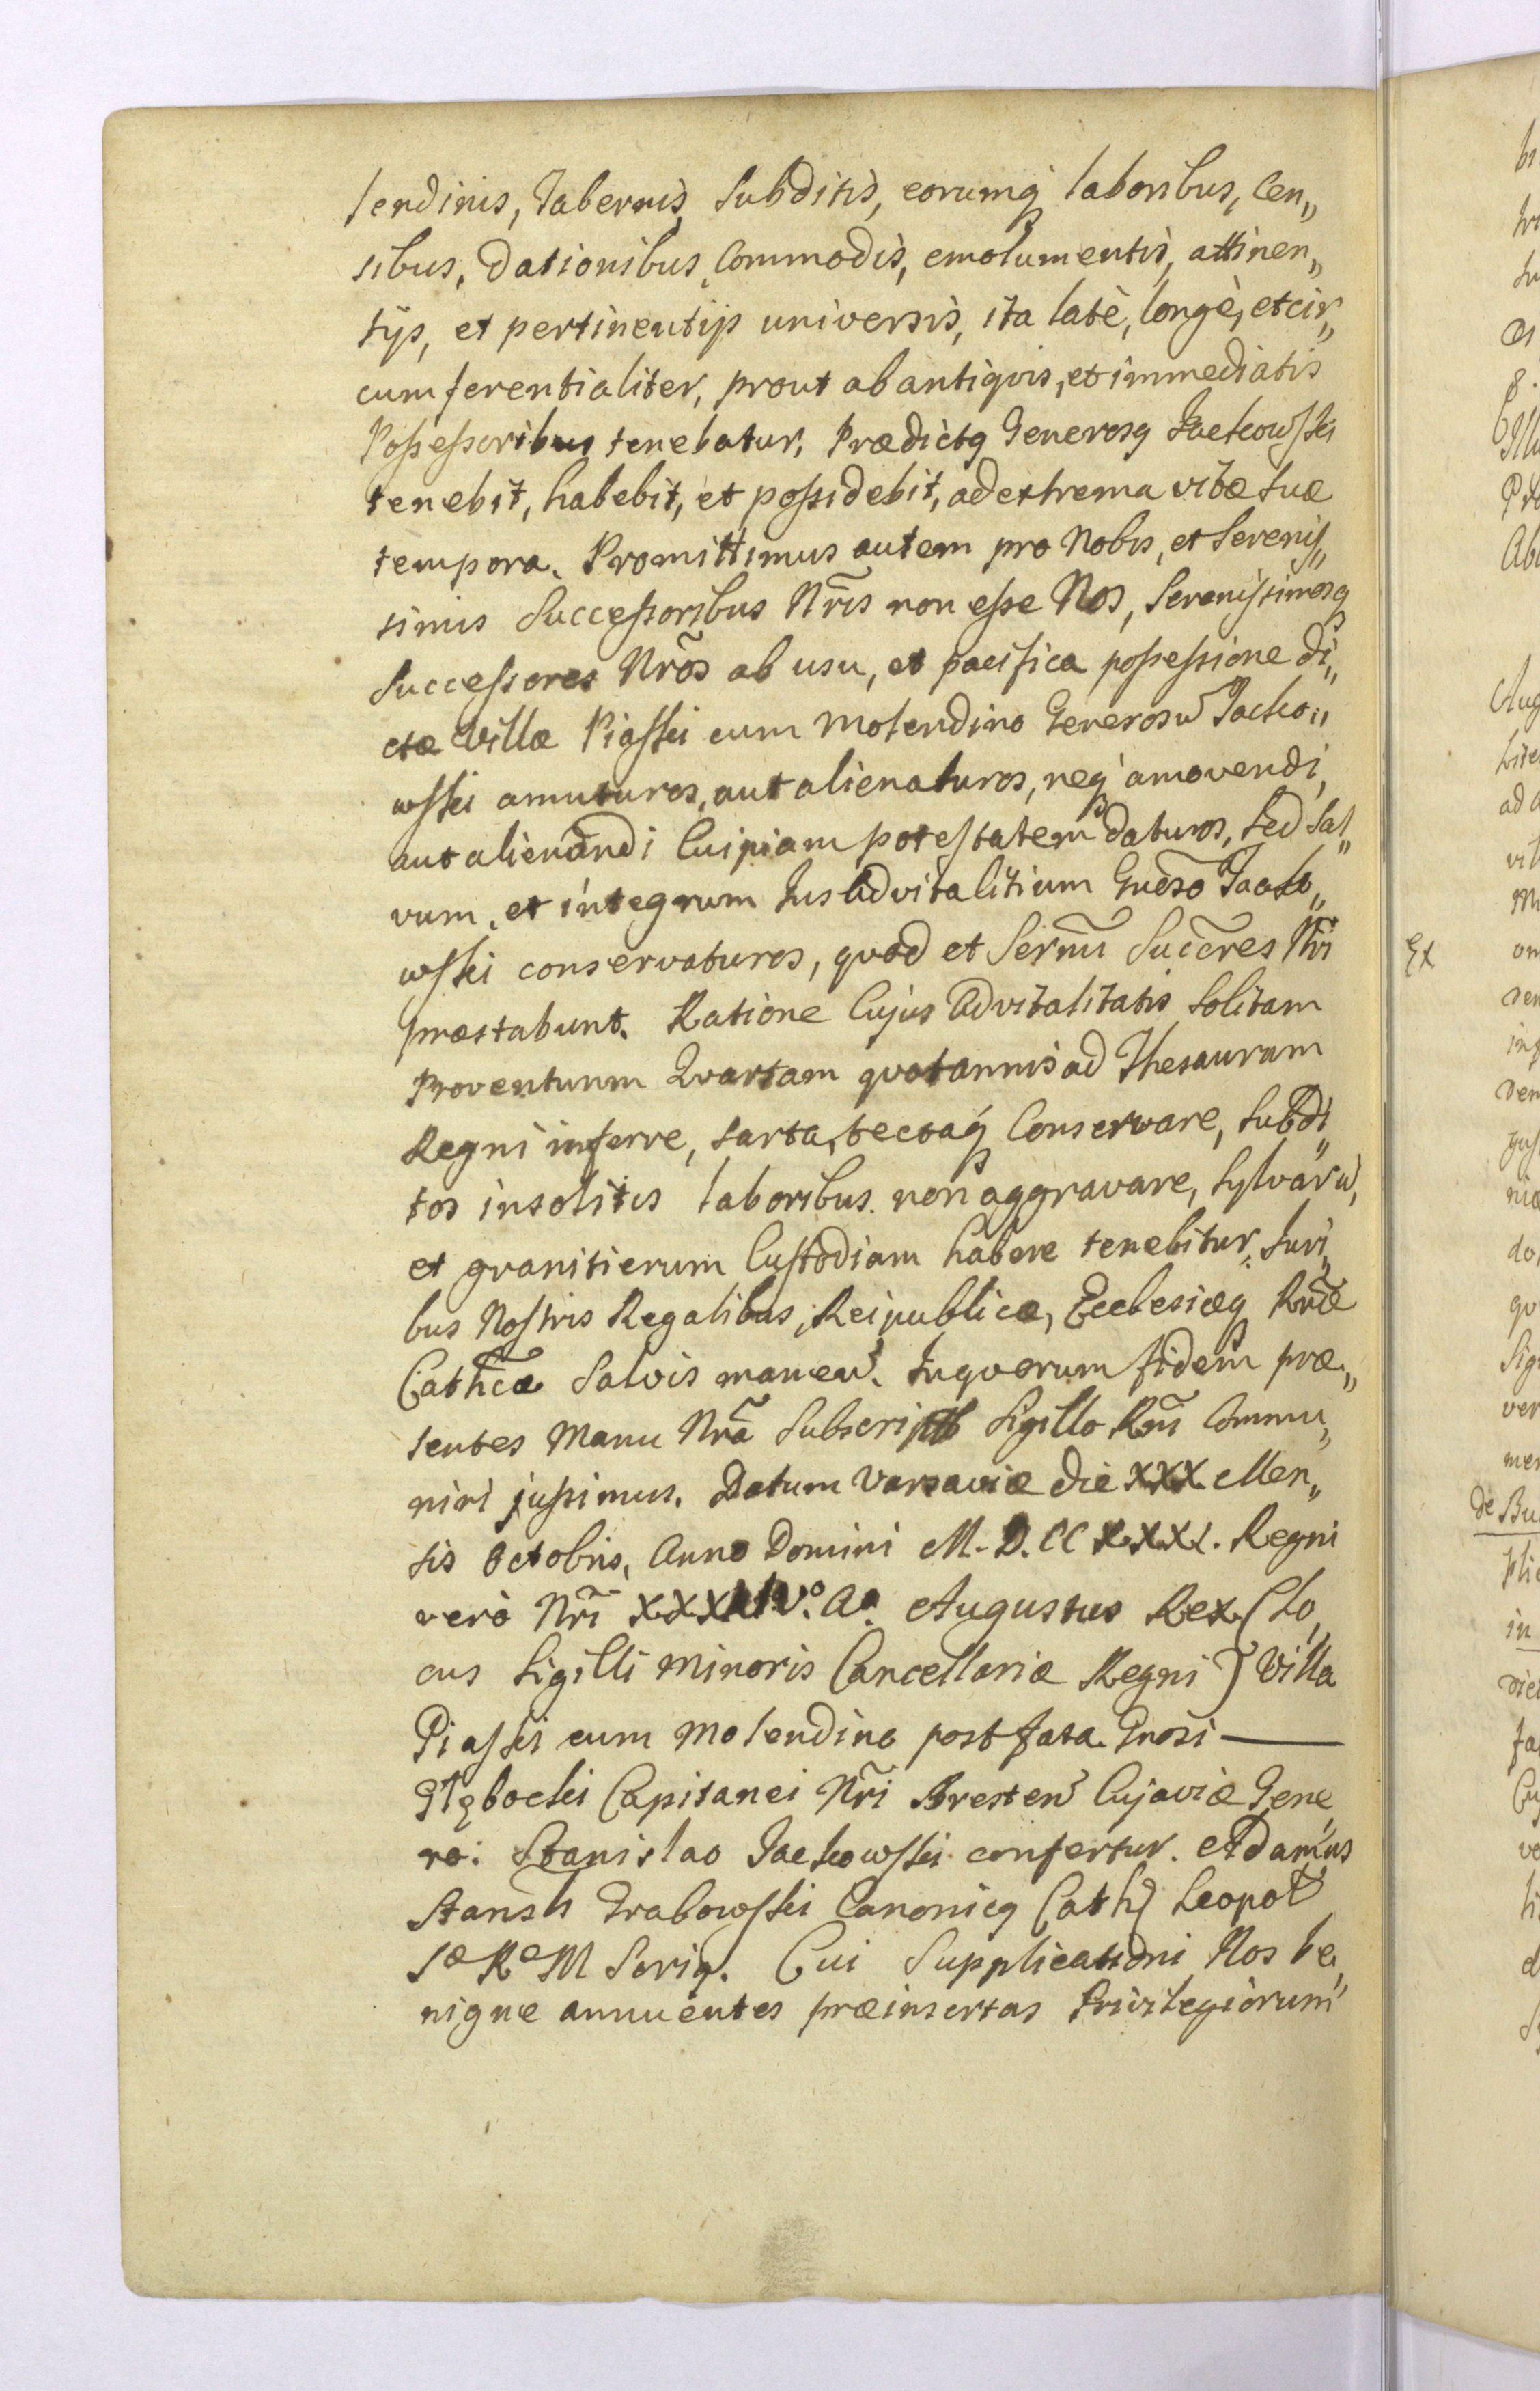 lendinis, Tabernis, Subditis, eorumq́ laboribus, Cen„
sibus, Dationibus, Commodis, emolumentis, attinen„
tijs, et pertinentijs universis, ita latè, longè, et cir„
cumferentialiter, prout ab antiqvis, et immediatis
Possessoribus tenebatur, Prædictq Generosq Jackowski
tenebit, habebit, et possidebit, ad extrema vitæ suæ
tempora. Promittimus autem pro Nobis, et Serenis„
simis Successoribus Nr̃is non esse Nos, Serenissimosq
Successores Nrõs ab usu, et pacifica possessione di„
ctæ Villæ Piaski cum Molendino Generosũ Jacko„
wski amuturos, aut alienaturos, neq́ amovendi,
aut alienandi Cuipiam potestatem daturos, sed sal„
vum, et integrum Jus Advitalitium Gnẽso Jacko„
wski conservaturos, qvod et Sermĩ Succẽres Nr̃i
præstabunt. Ratione Cujus Advitalitatis solitam
Proventuum Qvartam qvotannis ad Thesaurum
Regni inferre, sarta, tectaq́ Conservare, subdi„
tos insolitis laboribus non aggravare, sylvarũ,
et granitierum Custodiam habere tenebitur, Juri„
bus Nostris Regalibus, Reipublicæ, Ecclesiæq Rnæ̃
Cathcæ̃ Salvis manen̄. In qvorum fidem præ„
sentes Manu Nrã Subscript̃ Sigillo Rñi Commu„
niri jussimus. Datum Varsaviæ die XXX. Men„
sis Octobris, Anno Domini M. D. CC XXXI. Regni
verò Nr̃i Aº. Augustus Rex (Lo„
cus Sigilli Minoris Cancellariæ Regni) Villa
Piaski cum Molendino post fata Gnosi —
Głębocki Capitanei Nr̃i Bresten̄ Cujaviæ Gene„
ro: Stanislao Jackowski confertur. Adamus
Stansł Grabowski Canonicq Cath) Leopol̃
Sæ Ræ M Scriq. Cui Supplicationi Nos be„
nigne annuentes præinsertas Privilegiorum
Ex